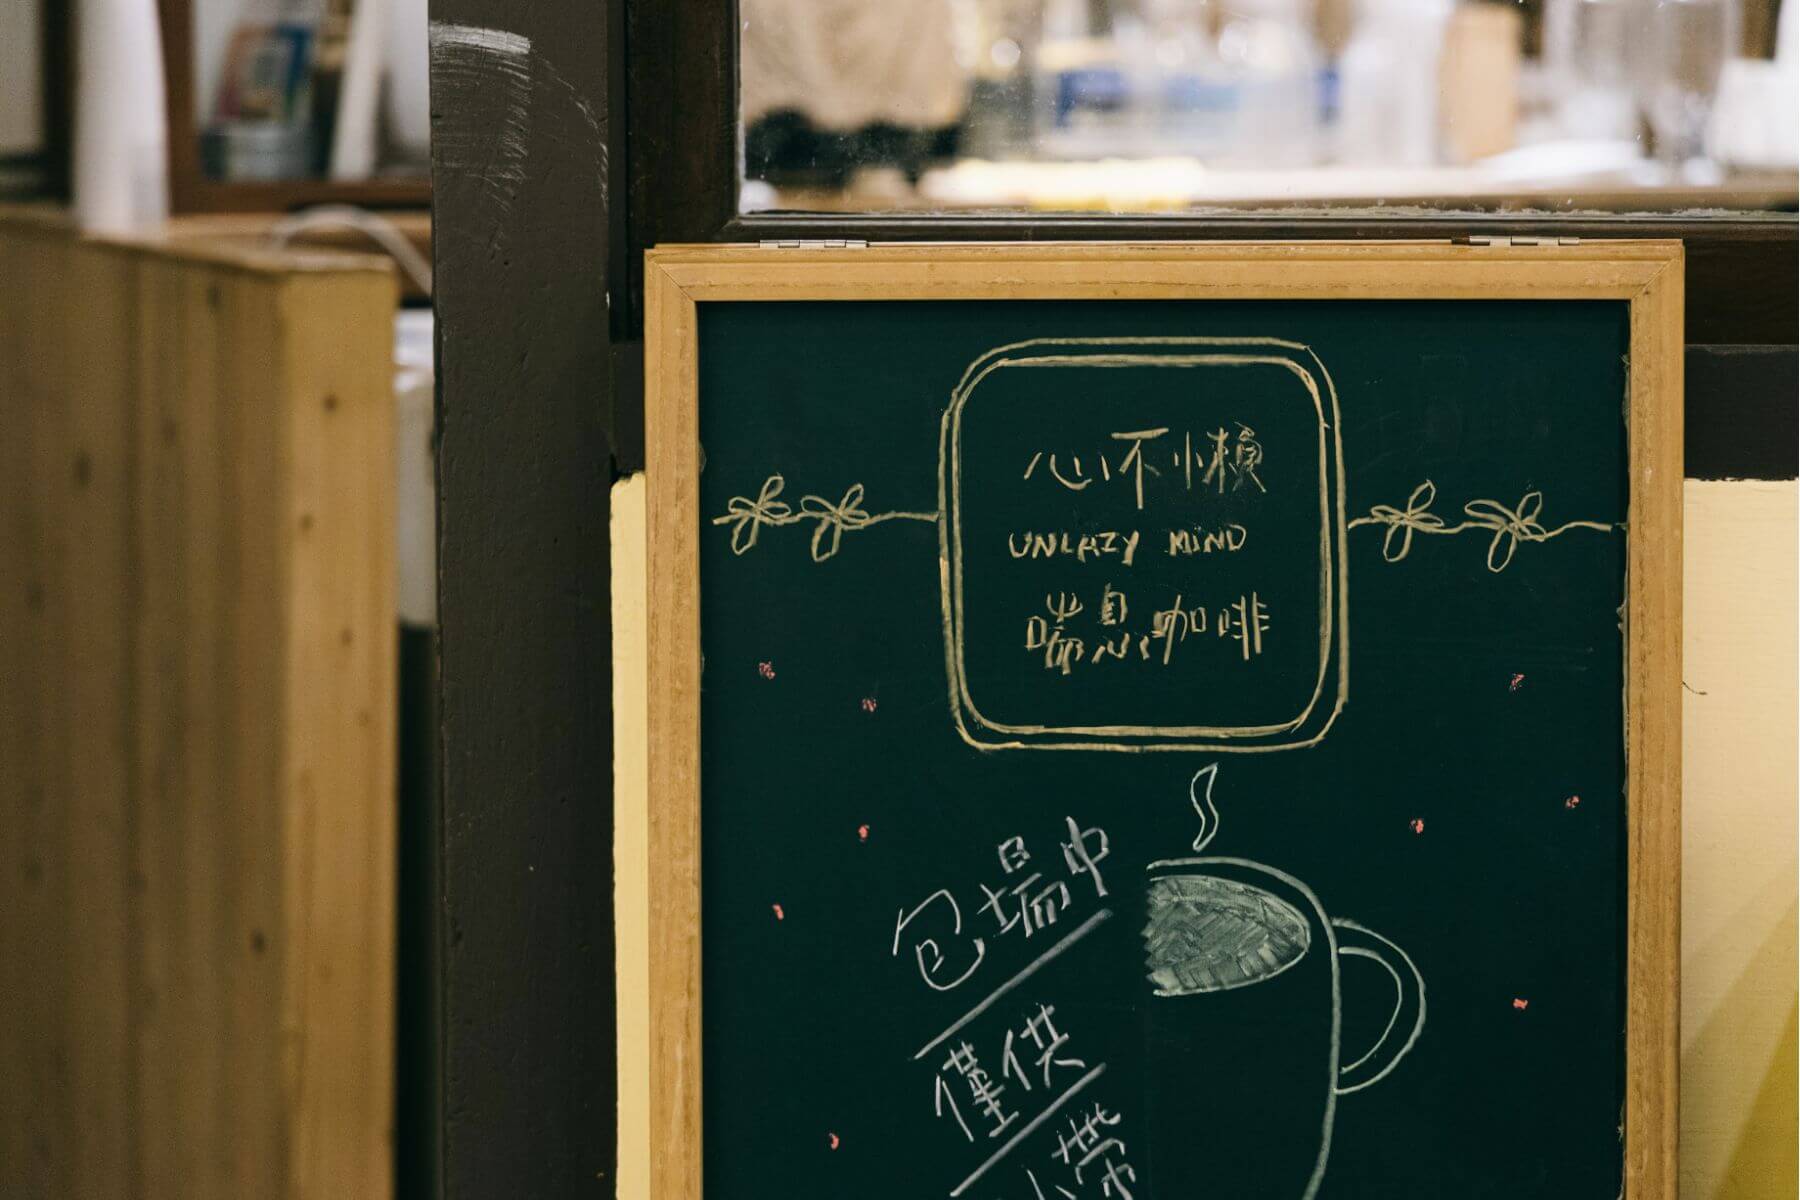 心不懶
UNLAZY MIND
喘息咖啡
包場中
僅供
外帶